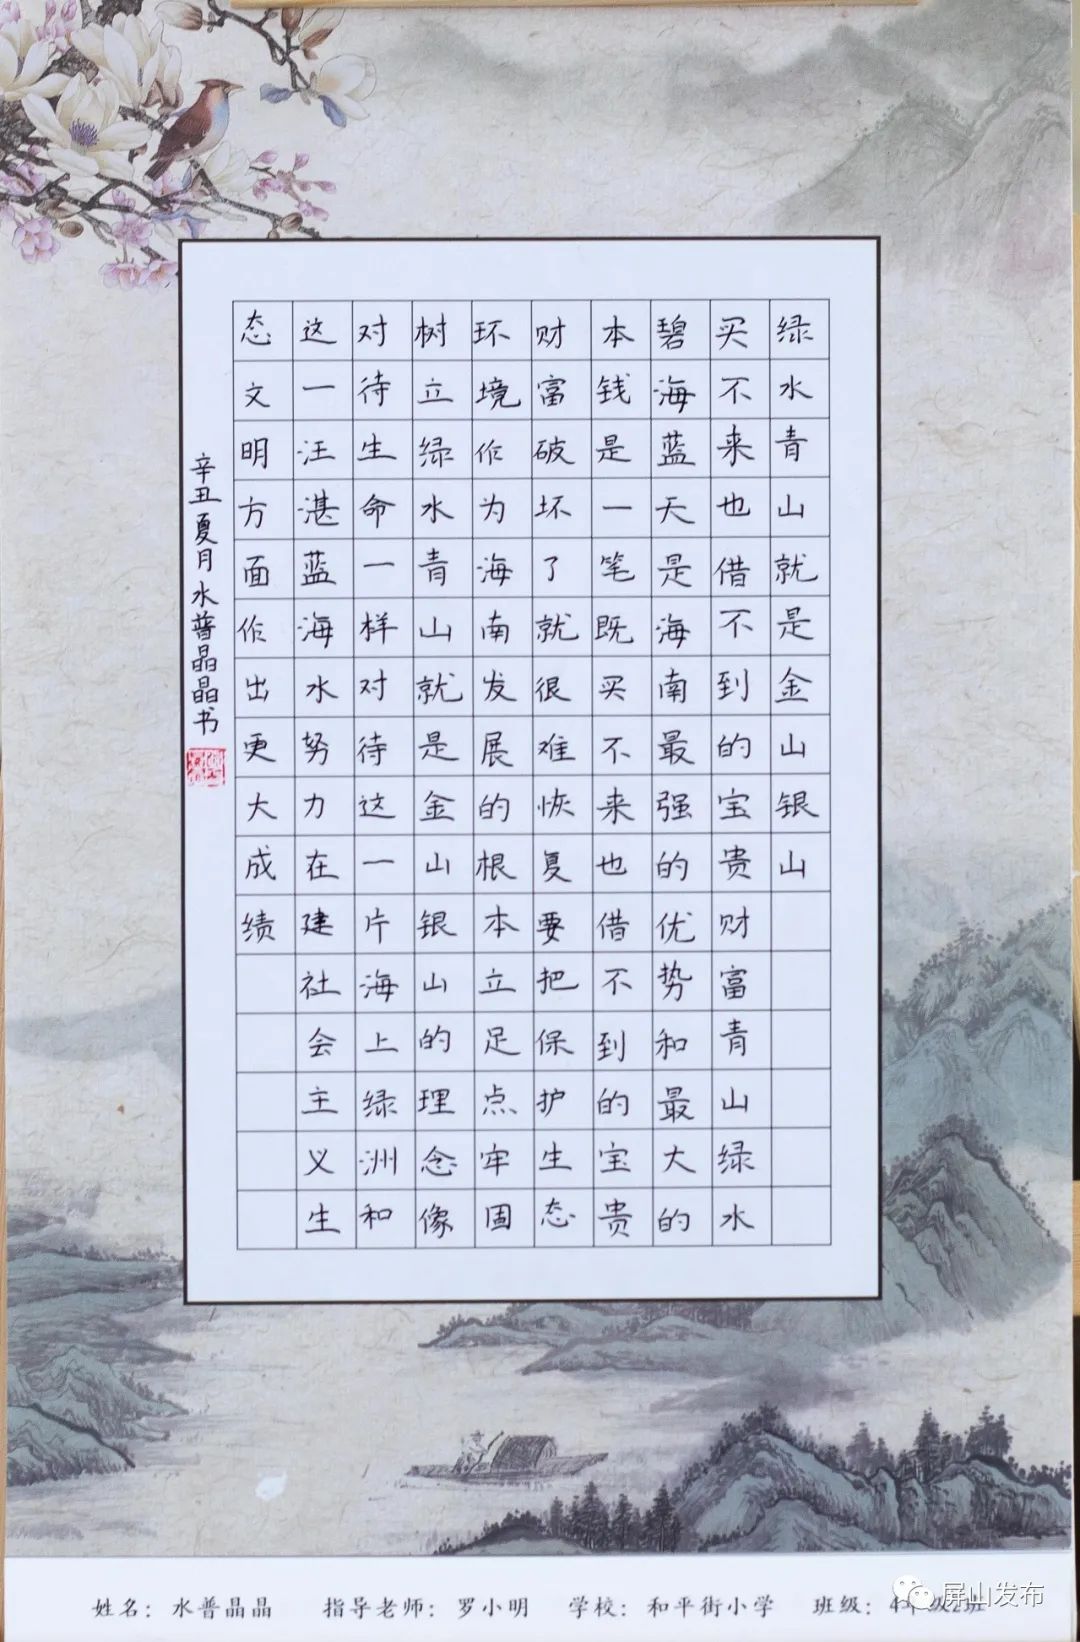 绿水青山就是金山银山
买不来也借不到的宝贵财富青山绿水
碧海蓝天是海南最强的优势和最大的
本钱是一笔既买不来也借不到的宝贵
财富破坏了就很难恢复要把保护生态
环境作为海南发展的根本立足点牢固
树立绿水青山就是金山银山的理念像
对待生命一样对待这一片海上绿洲和
这一汪湛蓝海水努力在建社会主义生
态文明方面作出更大成绩
辛丑夏月水普晶晶书
姓名：水普晶晶 指导老师：罗小明 学校：和平街小学 班级：4年级2班
屏山发布